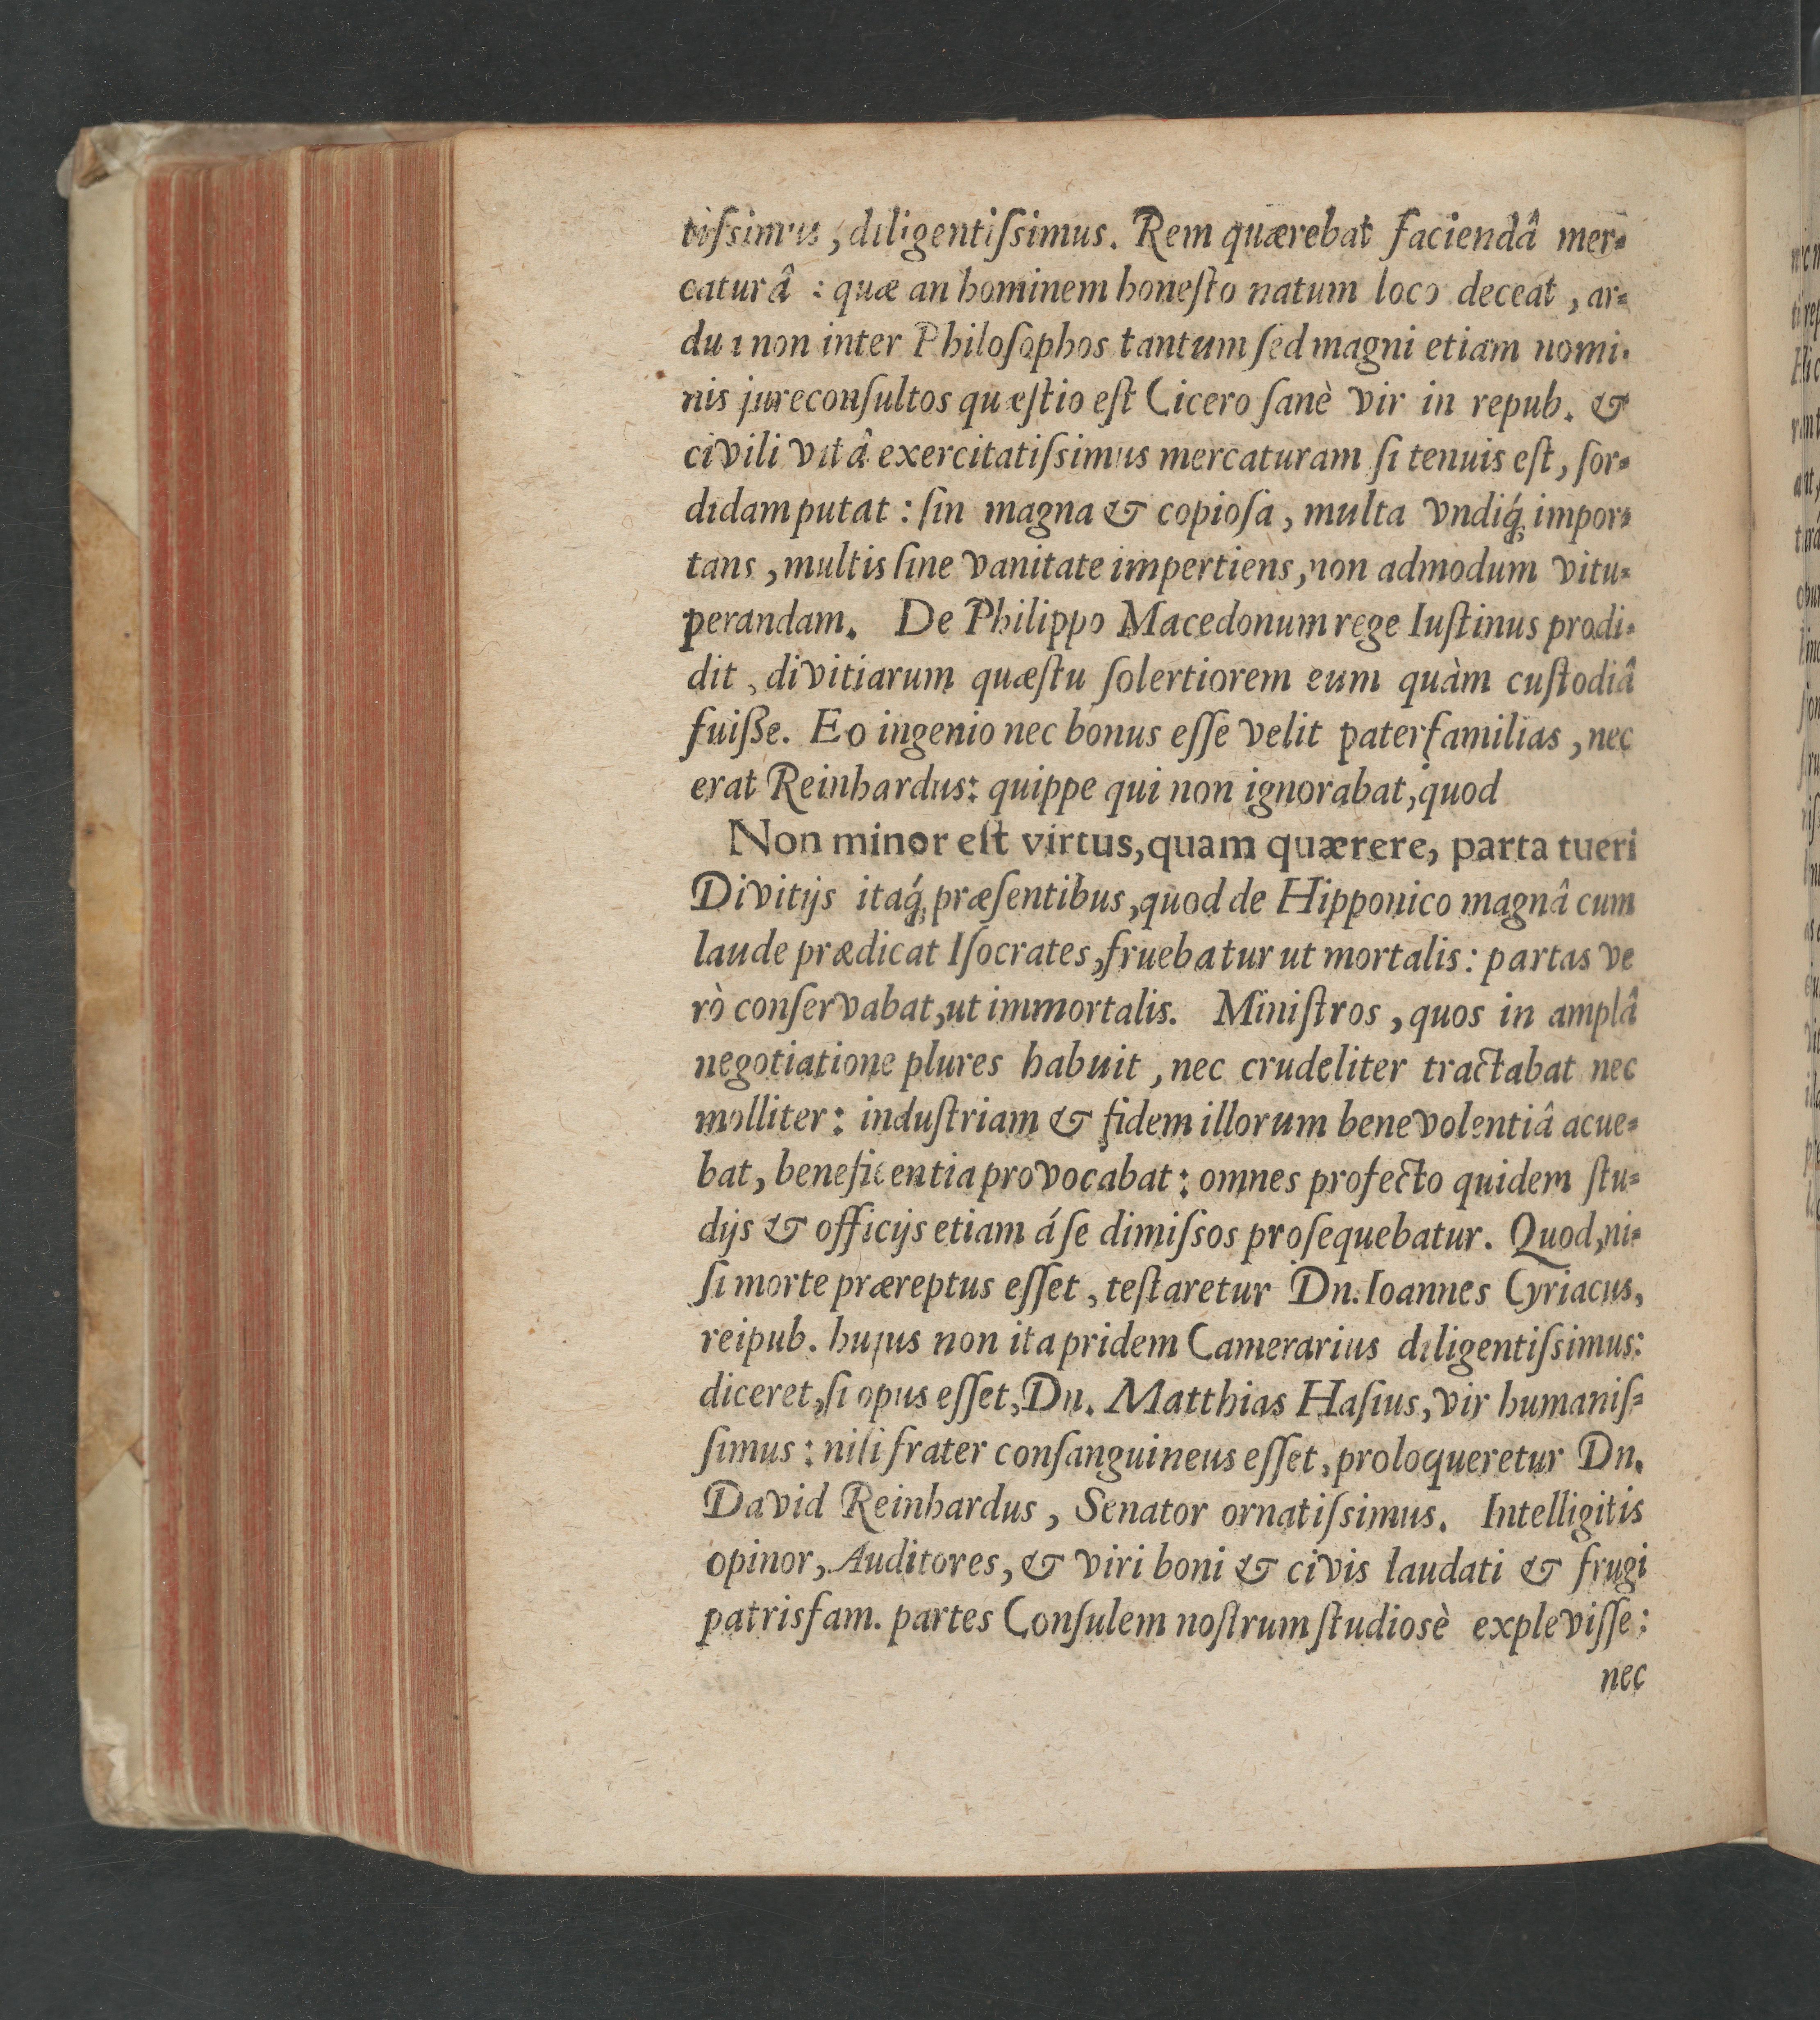 tiſsimus, diligentiſsimus. Rem quærebat faciendâ mer-
caturâ: quæ an hominem honeſto natum loco deceat, ar-
dua non inter Philoſophos tantum ſed magni etiam nomi-
nis jureconſultos quæſtio eſt Cicero ſanè vir in repub. &
civili vitâ exercitatiſsimus mercaturam ſi tenuis eſt, ſor-
didam putat: ſin magna & copioſa, multa vndiq́; impor-
tans, multis ſine vanitate impertiens, non admodum vitu-
perandam. De Philippo Macedonum rege Iuſtinus prodi-
dit, divitiarum quæſtu ſolertiorem eum quàm cuſtodiâ
fuiſſe. Eo ingenio nec bonus eſſe velit paterfamilias, nec
erat Reinhardus: quippe qui non ignorabat, quod
Non minor eſt virtus, quam quærere, parta tueri
Divitijs itaq́; præſentibus, quod de Hipponico magnâ cum
laude prædicat Iſocrates, fruebatur ut mortalis: partas ve
rò conſervabat, ut immortalis. Miniſtros, quos in amplâ
negotiatione plures habuit, nec crudeliter tractabat nec
molliter: induſtriam & fidem illorum benevolentiâ acue-
bat, beneficentia provocabat: omnes profecto quidem ſtu-
dijs & officijs etiam á ſe dimiſsos proſequebatur. Quod, ni-
ſi morte præreptus eſſet, teſtaretur Dn. Ioannes Cyriacus,
reipub. hujus non ita pridem Camerarius diligentiſsimus:
diceret, ſi opus eſſet, Dn. Matthias Haſius, vir humaniſ-
ſimus: niſi frater conſanguineus eſſet, proloqueretur Dn.
David Reinhardus, Senator ornatiſsimus. Intelligitis
opinor, Auditores, & viri boni & civis laudati & frugi
patrisfam. partes Conſulem noſtrum ſtudiosè expleviſſe:
nec